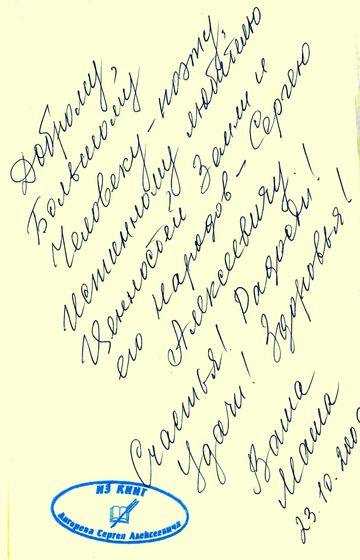 Доброму,
Большому
Человеку - поэту,
Истинному любителю
Ценностей Земли и
его народов - Сергею
Алексеевичу.
Счастья! Радости!
Удачи! Здоровья!
Ваша
Маша
23.10.200
ИЗ КНИГ
Сергея Алексеевича